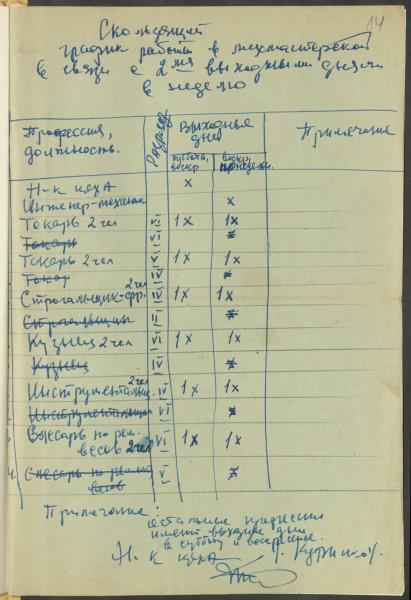 14
Скользящий
график работы в мехмастерской
в связи с 2мя выходными днями
в неделю
Профессия, должность. Разряд Выходные дни Примечание
суббота, воскр. воскр. понедельн.
Н-к цеха x
Инженер-механик x
Токарь 2 чел VI 1x 1x
Токарь VI x
Токарь 2 чел IV 1x 1x
Токар IV x
Строгальщик-фр. 2 чел IV 1x 1x
Строгальщик x
Кузнец 2 чел VI 1x 1x
Кузнец x
Инструментальщ. 2 чел IV 1x 1x
Инструментальщик VI x
Слесарь по рем. весов 2 чел VI 1x 1x
4. Слесарь по ремон. весов V x
Примечание: остальные профессии
имеют выходные дни
в субботу и воскресенье.
Н-к цеха